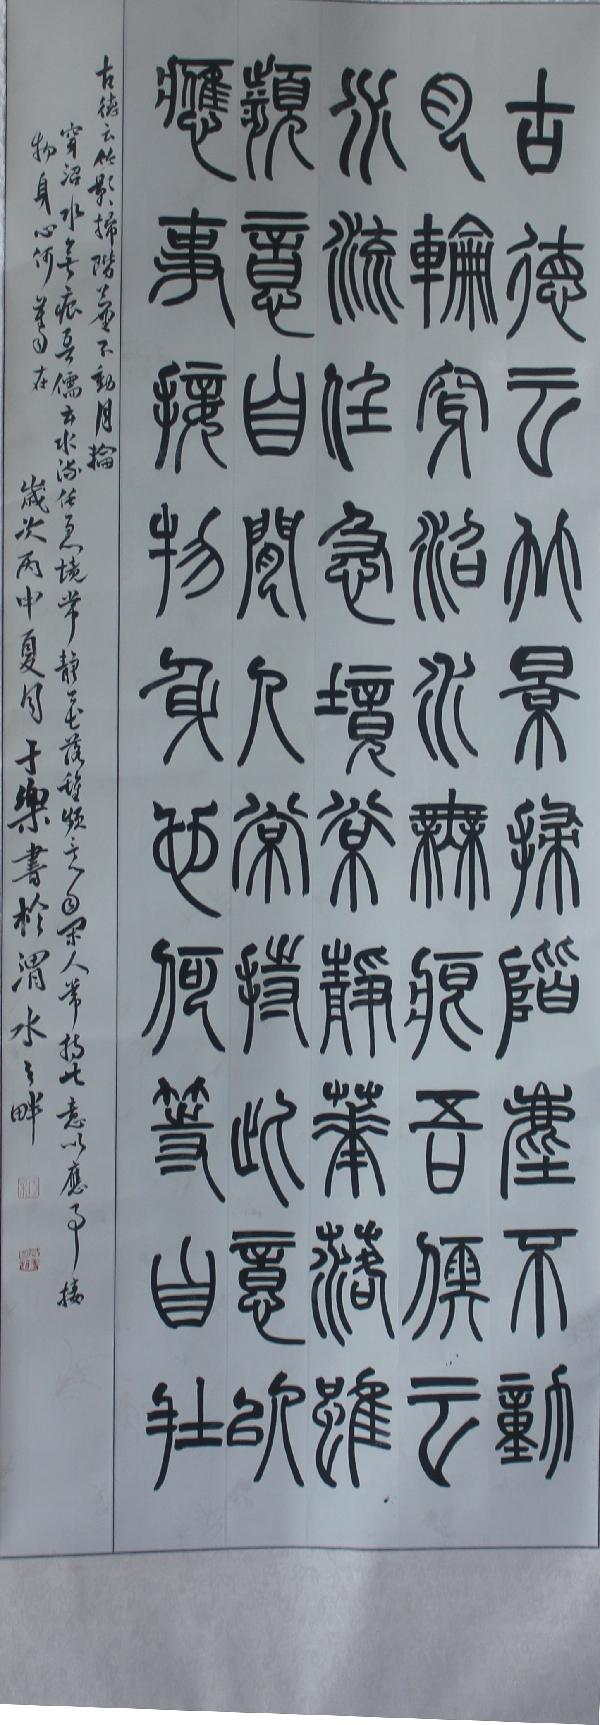 古德云竹景掃階塵不動
月輪穿沼水無痕吾儒云
水流任急境常靜華落雖
頻意自閒人常持此意以
應事接物身心何等自在
古德云竹影掃階塵不動月輪
穿沼水無痕吾儒云水流任急境常靜花落雖頻意自閑人常持此意以應事接
物身心何等自在
歲次丙申夏月于樂書於渭水之畔